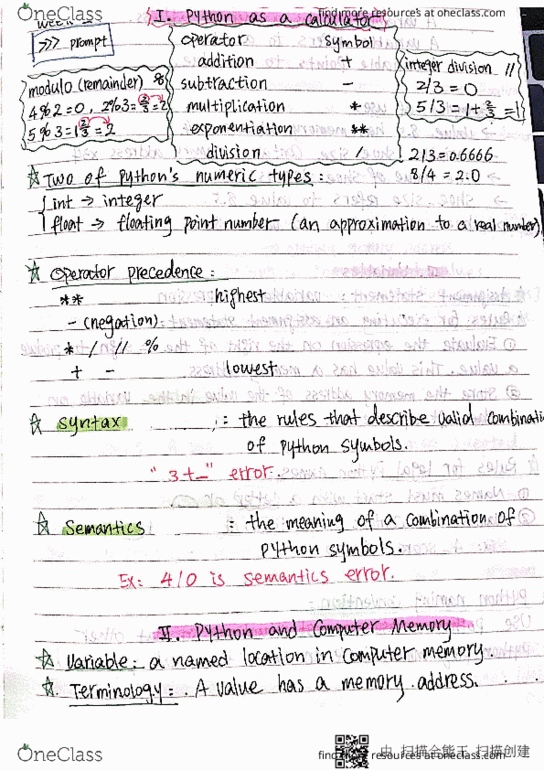 I. Python as a calculator
find more resources at oneclass.com
OneClass
>>> prompt
operator symbol
addition +
subtraction -
multiplication *
exponentiation **
division /
modulo (remainder) %
4%2=0, 2%3=2/3=2
5%3=1 2/3=2
integer division //
2/3=0
5/3=1+2/3=1
2/3=0.6666
8/4=2.0
☆ Two of Python's numeric types:
int → integer
float → floating point number (an approximation to a real number)
☆ Operator precedence:
** highest
- (negation)
* / // %
+ - lowest
☆ syntax : the rules that describe valid combinatio
of Python symbols.
"3+_" error.
☆ Semantics : the meaning of a combination of
Python symbols.
Ex: 4/0 is semantics error.
II. Python and Computer Memory
☆ Variable: a named location in computer memory.
☆ Terminology: A value has a memory address.
OneClass
find more resources at oneclass.com
扫描全能王 扫描创建